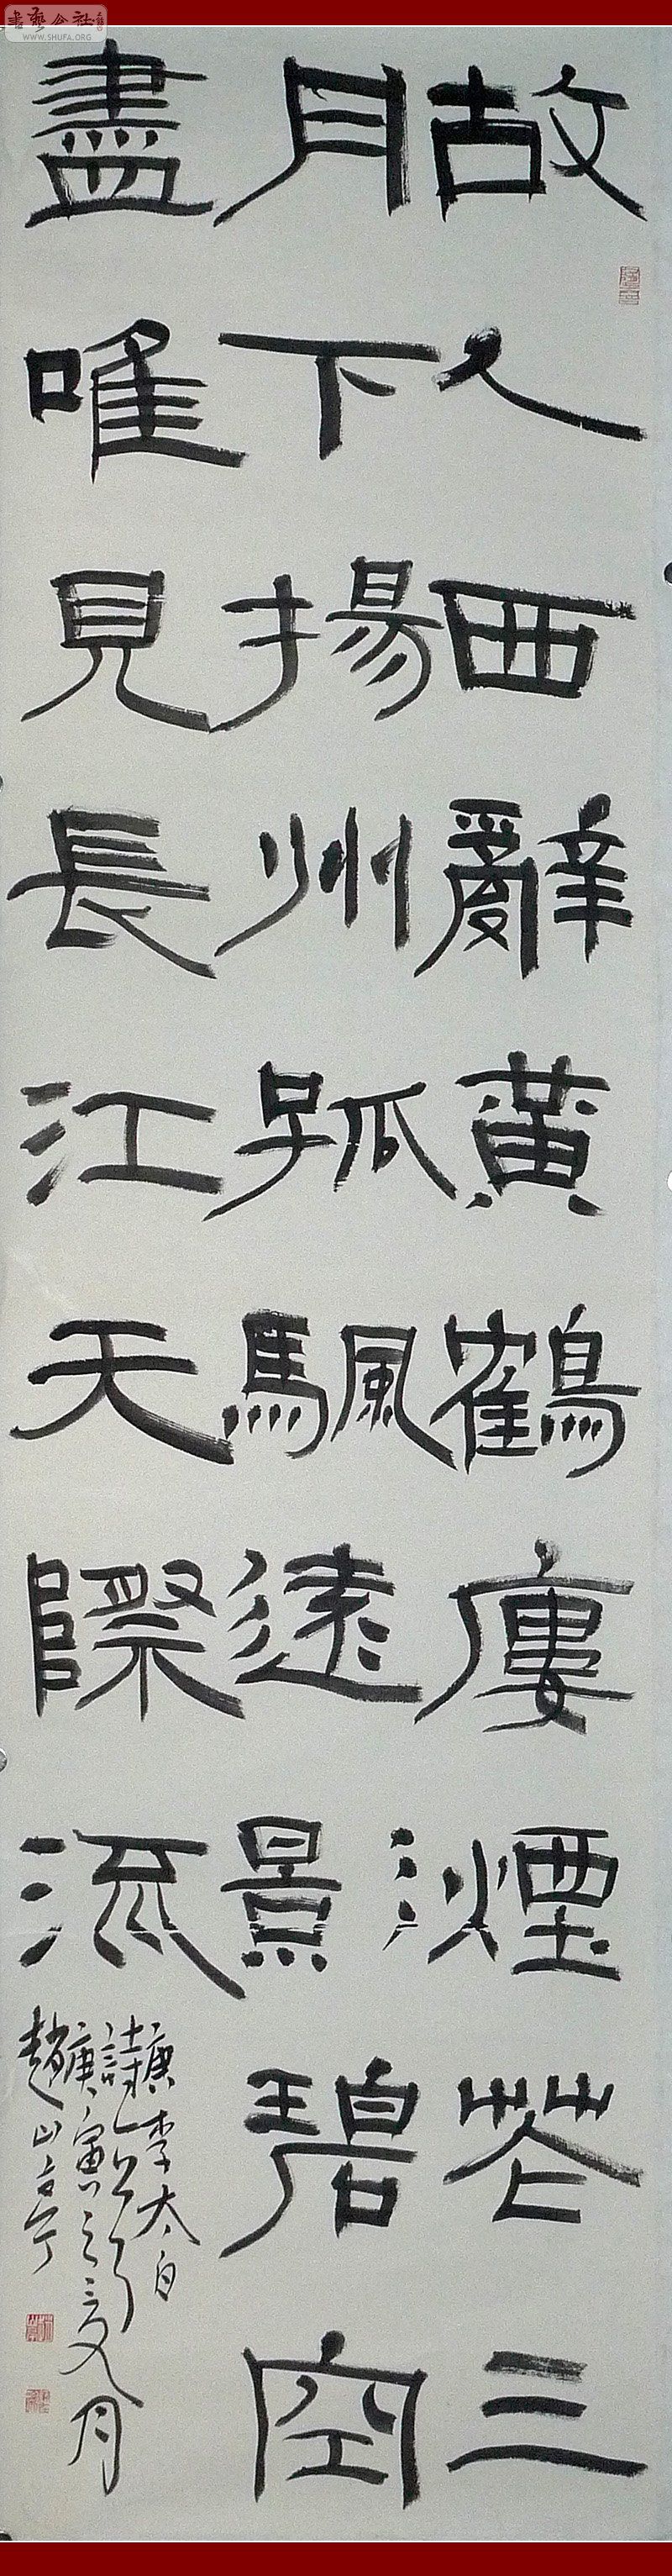 書藝公社
WWW.SHUFA.ORG
故人西辭黃鶴廔煙花三
月下揚州孤颿遠景碧空
盡唯見長江天際流
唐李太白
詩
庚寅之夏月
趙山亭